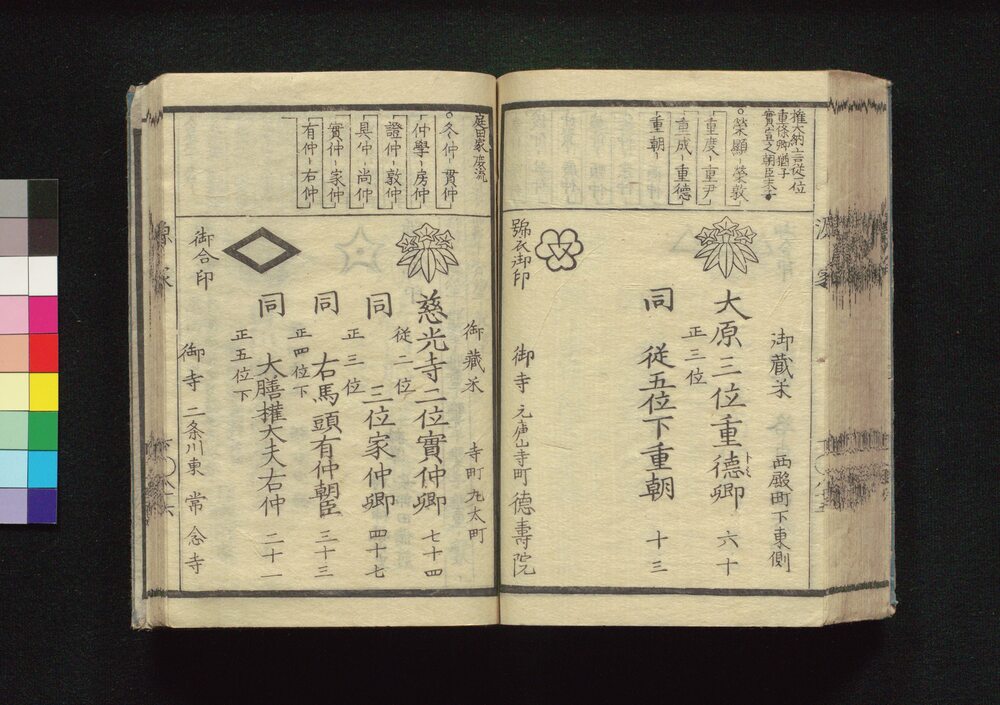 権大納言従一位
重條卿猶子
實者之朝臣末子
榮顯 榮敦
重度 重尹
重成 重德
重朝
御蔵米 西殿町下東側
大原三位重德卿 六十
正三位
同 従五位下重朝 十三
號衣御印 御寺 元庐山寺町 德壽院
庭田家庶流
冬仲 貫仲
仲學 房仲
證仲 敦仲
具仲 尚仲
實仲 家仲
有仲 右仲
御藏米 寺町丸太町
慈光寺二位實仲卿 七十四
従二位
同 三位家仲卿 四十七
正三位
同 右馬頭有仲朝臣 三十三
正四位下
同 大膳権大夫右仲 二十一
正五位下
御合印 御寺 二条川東 常念寺